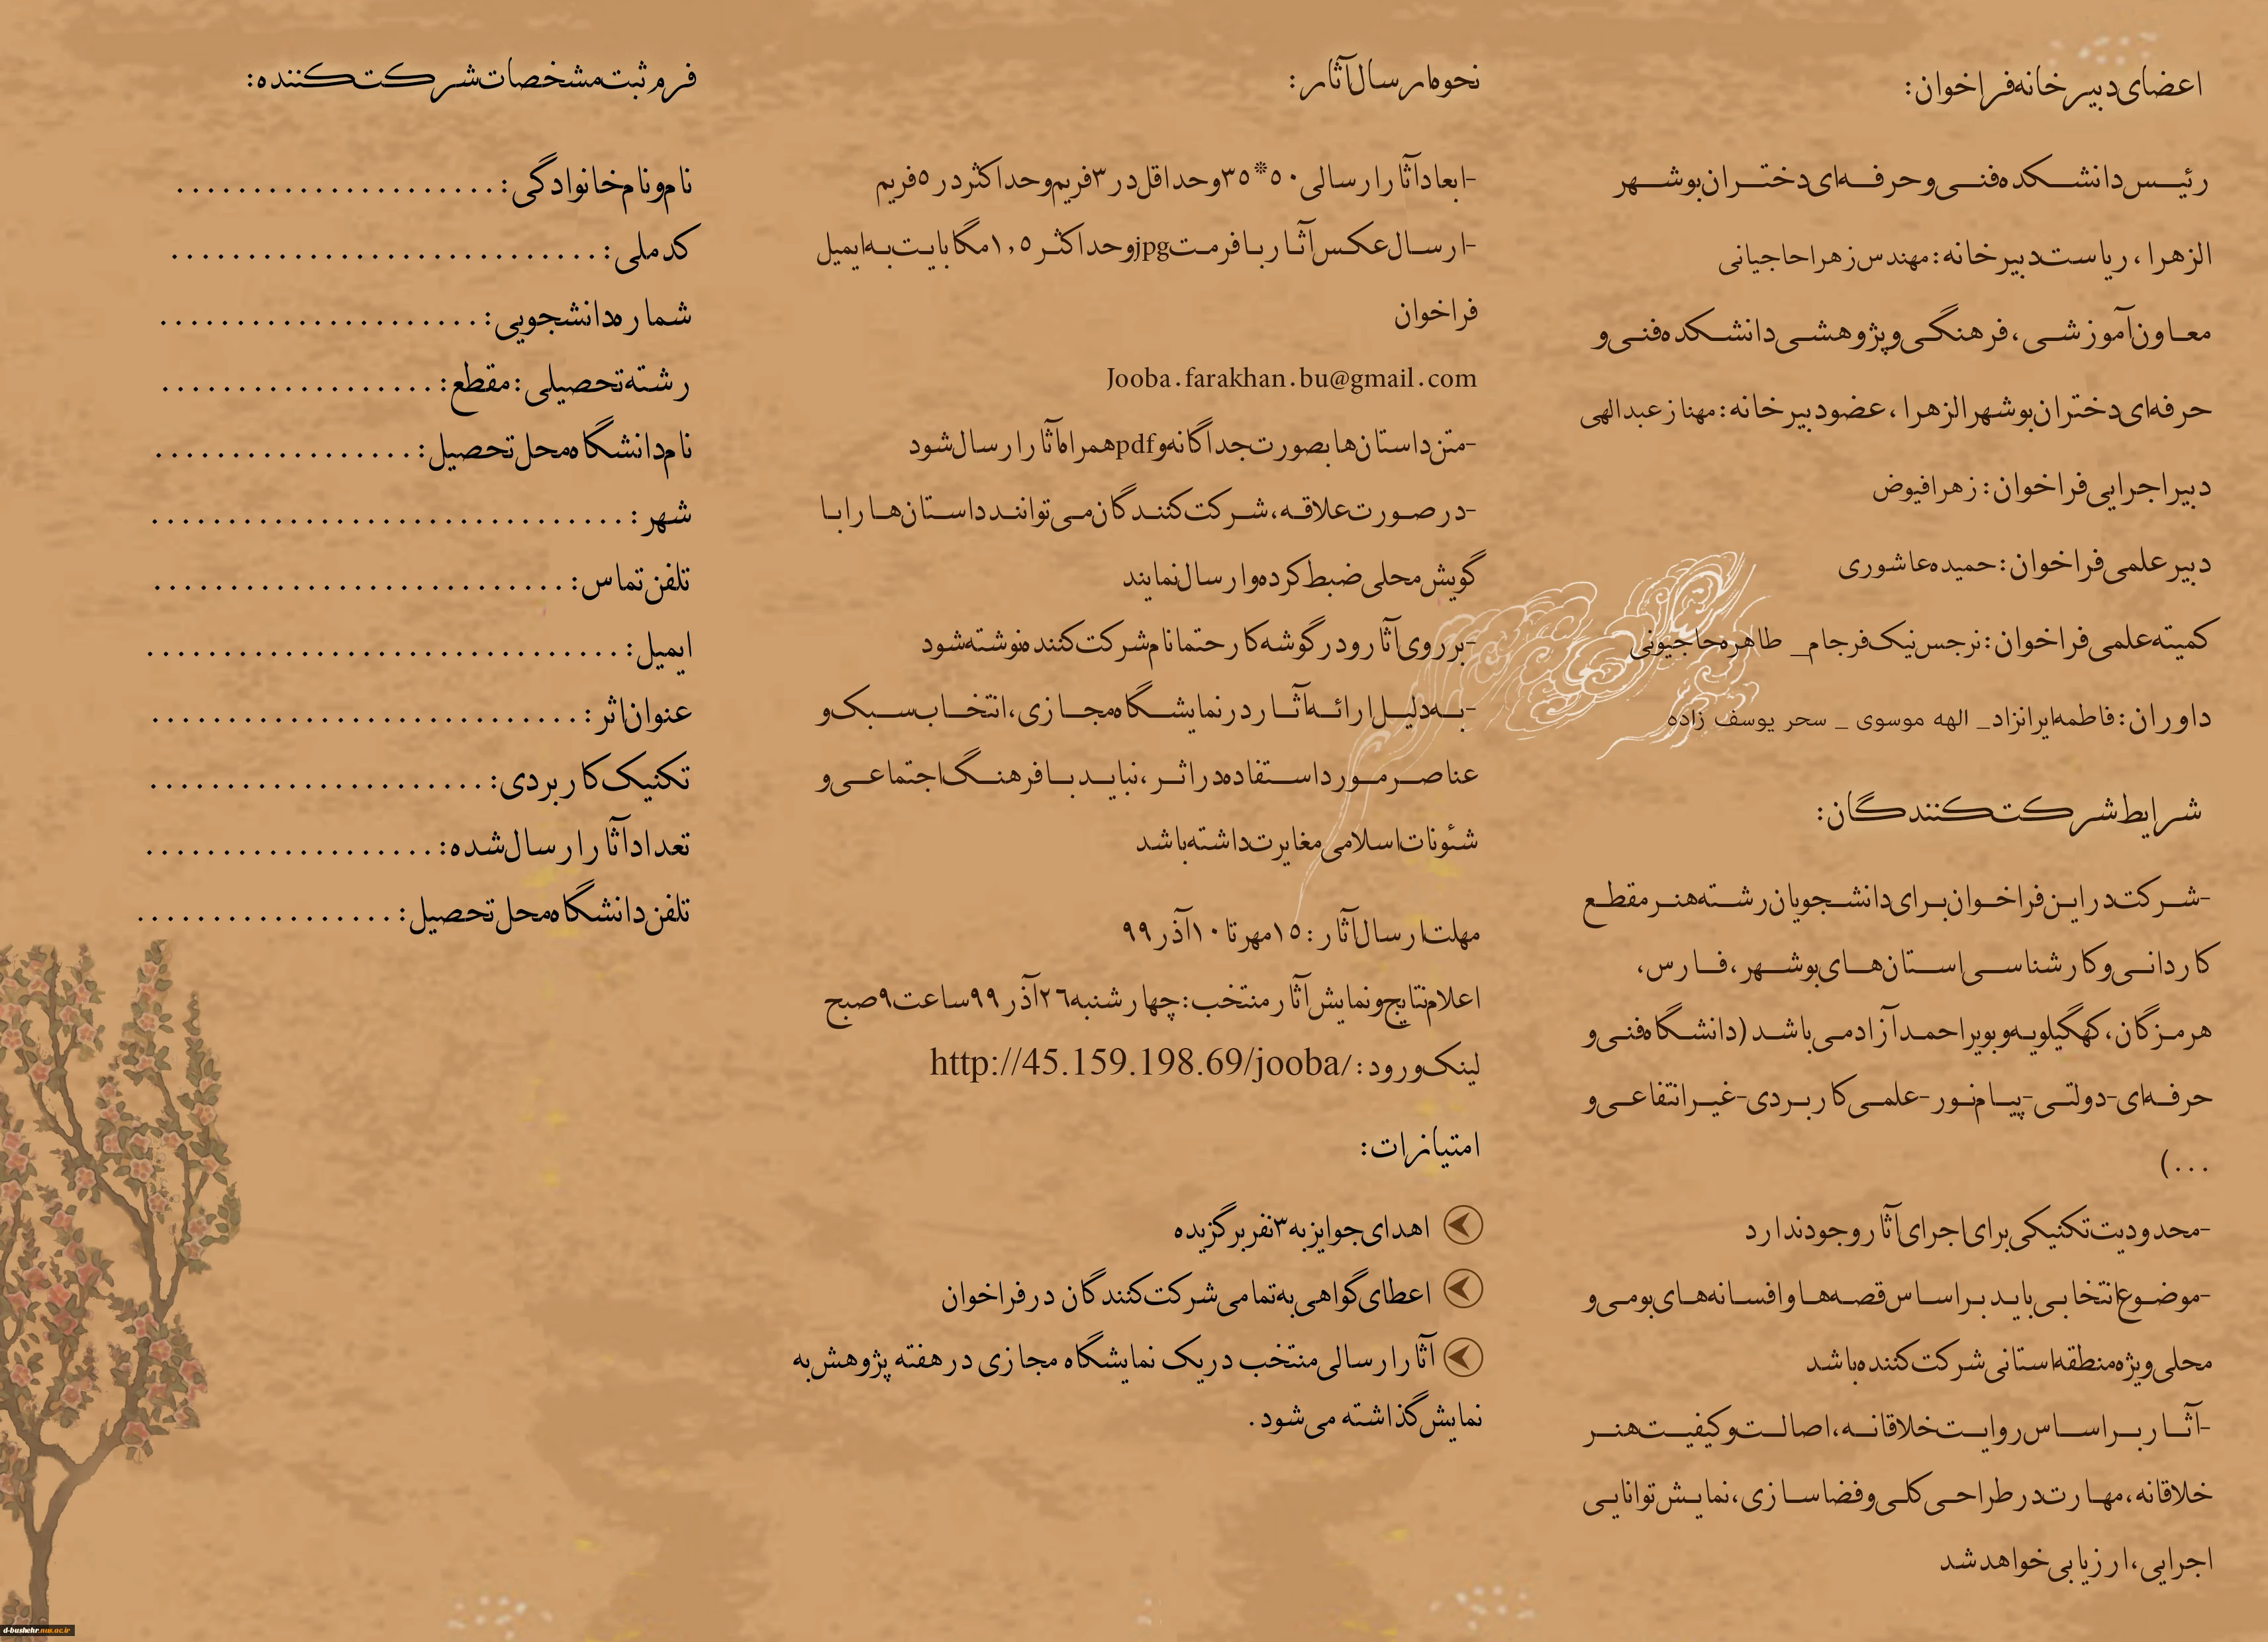 اعضای دبیرخانه فراخوان:
رئیس دانشکده فنی و حرفه ای دختران بوشهر
الزهرا، ریاست دبیرخانه: مهندس زهرا حاجیانی
معاون آموزشی، فرهنگی و پژوهشی دانشکده فنی و
حرفه ای دختران بوشهر الزهرا، عضو دبیرخانه: مهناز عبدالهی
دبیر اجرایی فراخوان: زهرا فیوض
دبیر علمی فراخوان: حمیده عاشوری
کمیته علمی فراخوان: نرجس نیک فرجام_ طاهره حاجیونی
داوران: فاطمه ایرانزاد_ الهه موسوی _ سحر یوسف زاده
شرایط شرکت کنندگان:
-شرکت در این فراخوان برای دانشجویان رشته هنر مقطع
کاردانی و کارشناسی استان های بوشهر، فارس،
هرمزگان، کهگیلویه و بویراحمد آزاد می باشد (دانشگاه فنی و
حرفه ای-دولتی-پیام نور-علمی کاربردی-غیرانتفاعی و
...)
-محدودیت تکنیکی برای اجرای آثار وجود ندارد
-موضوع انتخابی باید بر اساس قصه ها و افسانه های بومی و
محلی ویژه منطقه استانی شرکت کننده باشد
-آثار بر اساس روایت خلاقانه، اصالت و کیفیت هنر
خلاقانه، مهارت در طراحی کلی و فضا سازی، نمایش توانایی
اجرایی، ارزیابی خواهد شد
نحوه ارسال آثار:
-ابعاد آثار ارسالی ۵۰*۳۵ و حداقل در ۳ فریم و حداکثر در ۵ فریم
-ارسال عکس آثار با فرمت jpg و حداکثر ۱,۵ مگابایت به ایمیل
فراخوان
Jooba.farakhan.bu@gmail.com
-متن داستان ها بصورت جداگانه و pdf همراه آثار ارسال شود
-در صورت علاقه، شرکت کنندگان می توانند داستان ها را با
گویش محلی ضبط کرده و ارسال نمایند
-بر روی آثار و در گوشه کار حتما نام شرکت کننده نوشته شود
-به دلیل ارائه آثار در نمایشگاه مجازی، انتخاب سبک و
عناصر مورد استفاده در اثر، نباید با فرهنگ اجتماعی و
شئونات اسلامی مغایرت داشته باشد
مهلت ارسال آثار: ۱۵ مهر تا ۱۰ آذر ۹۹
اعلام نتایج و نمایش آثار منتخب: چهارشنبه ۲۶ آذر ۹۹ ساعت ۹ صبح
لینک ورود: http://45.159.198.69/jooba/
امتیازات:
اهدای جوایز به ۳ نفر برگزیده
اعطای گواهی به تمامی شرکت کنندگان در فراخوان
آثار ارسالی منتخب در یک نمایشگاه مجازی در هفته پژوهش به
نمایش گذاشته می شود.
فرم ثبت مشخصات شرکت کننده:
نام و نام خانوادگی: ......................
کد ملی: ............................
شماره دانشجویی: .....................
رشته تحصیلی: مقطع: ..................
نام دانشگاه محل تحصیل: .................
شهر: ...............................
تلفن تماس: ...........................
ایمیل: ...............................
عنوان اثر: ............................
تکنیک کاربردی: ......................
تعداد آثار ارسال شده: ...................
تلفن دانشگاه محل تحصیل: .................
d-bushehr.nus.ac.ir